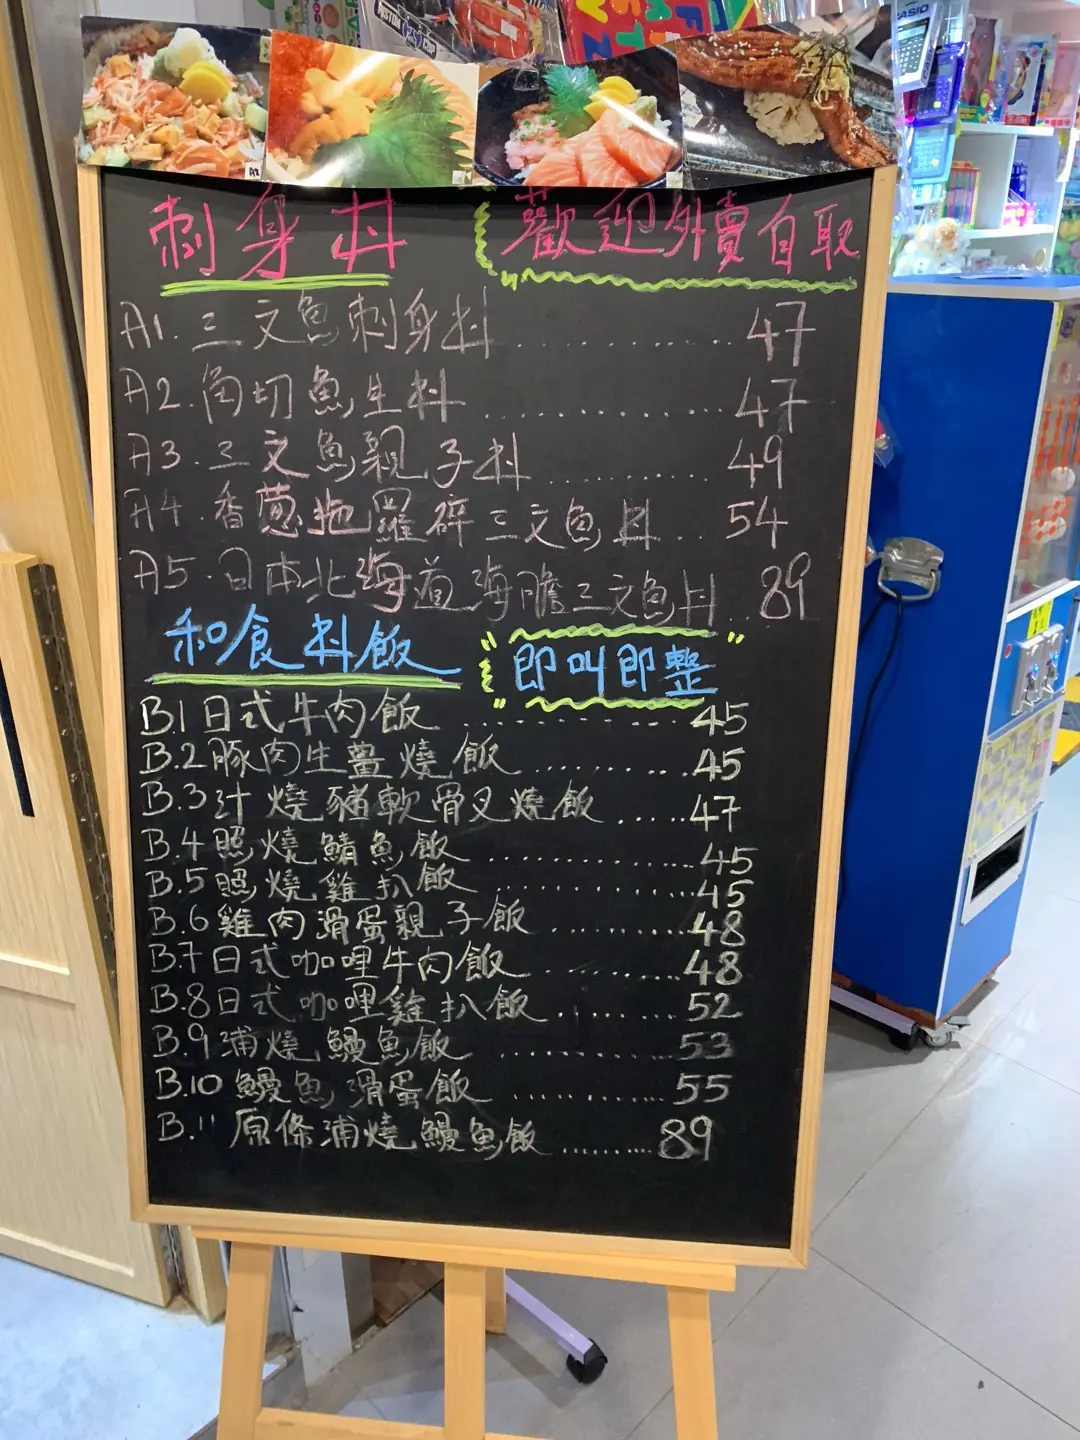 CASIO
A2
刺身丼
歡迎外賣自取
A1.三文魚刺身丼.................47
A2.角切魚生丼.................47
A3.三文魚親子丼.............49
A4.香蔥拖羅碎三文魚丼...54
A5.日本北海道海膽三文魚丼...89
和食丼飯
"即叫即整"
B.1日式牛肉飯.................45
B.2豚肉生薑燒飯.............45
B.3汁燒豬軟骨叉燒飯.....47
B.4照燒鯖魚飯.................45
B.5照燒雞扒飯.................45
B.6雞肉滑蛋親子飯.........48
B.7日式咖哩牛肉飯.........48
B.8日式咖哩雞扒飯.........52
B.9浦燒鰻魚飯.................53
B.10鰻魚滑蛋飯...............55
B.11原條浦燒鰻魚飯.........89